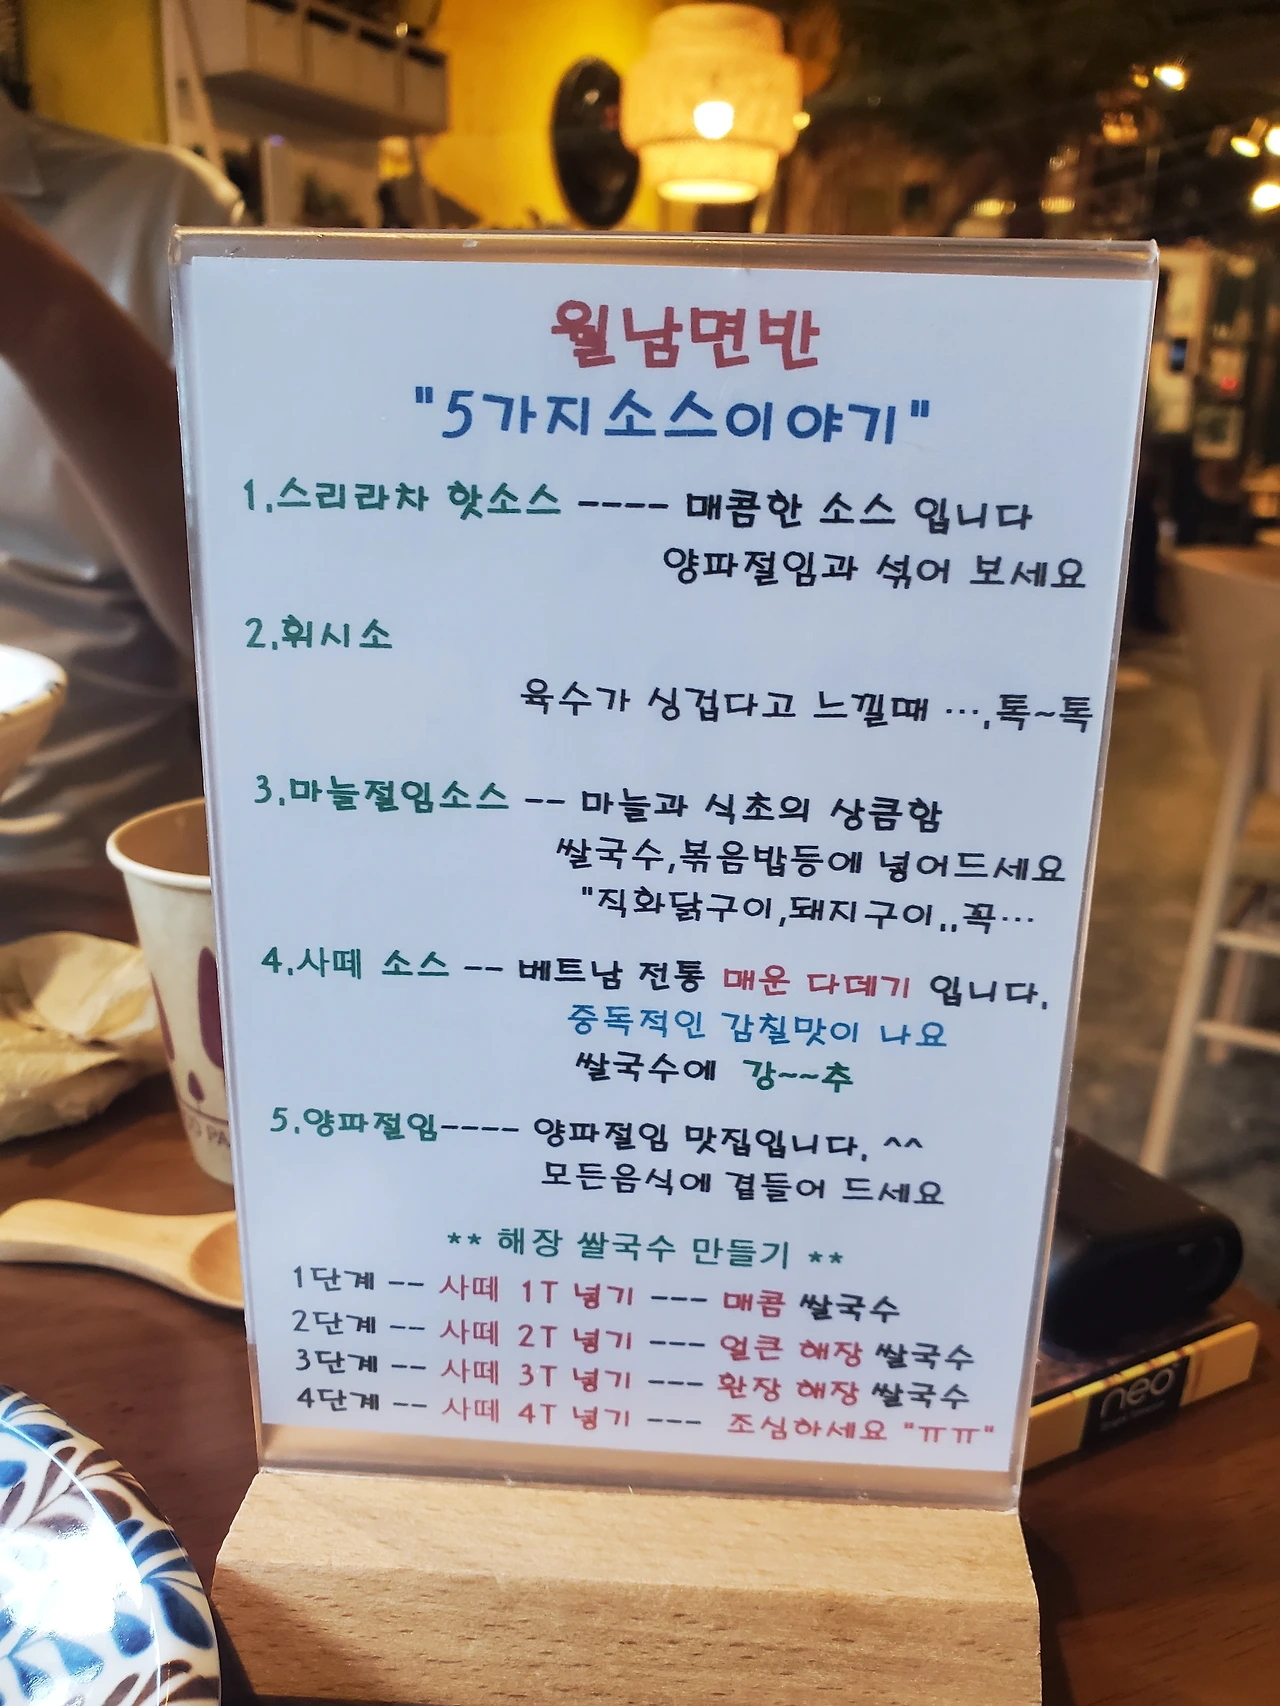 월남면반
"5가지소스이야기"
1.스리라차 핫소스 ---- 매콤한 소스 입니다
양파절임과 섞어 보세요
2.휘시소
육수가 싱겁다고 느낄때 ….톡~톡
3.마늘절임소스 -- 마늘과 식초의 상큼함
쌀국수,볶음밥등에 넣어드세요
"직화닭구이,돼지구이..꼭…
4.사떼 소스 -- 베트남 전통 매운 다데기 입니다.
중독적인 감칠맛이 나요
쌀국수에 강~~추
5.양파절임---- 양파절임 맛집입니다. ^^
모든음식에 곁들어 드세요
** 해장 쌀국수 만들기 **
1단계 -- 사떼 1T 넣기 --- 매콤 쌀국수
2단계 -- 사떼 2T 넣기 --- 얼큰 해장 쌀국수
3단계 -- 사떼 3T 넣기 --- 환장 해장 쌀국수
4단계 -- 사떼 4T 넣기 --- 조심하세요 "ㅠㅠ"
neo